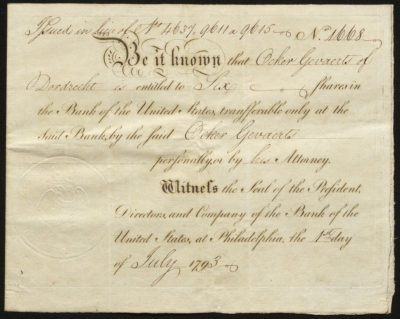 Issued in lieu of Nos 4637. 9611 a 9615 No. 1668
Be it known that Ocker Gevaerts of
Dordrecht is entitled to Six Shares in
the Bank of the United States, transferrable only at the
Said Bank, by the said Ocker Gevaerts
personally, or by his Attorney.
Witness the Seal of the President,
Directors, and Company of the Bank of the
United States, at Philadelphia, the 1st day
of July 1793